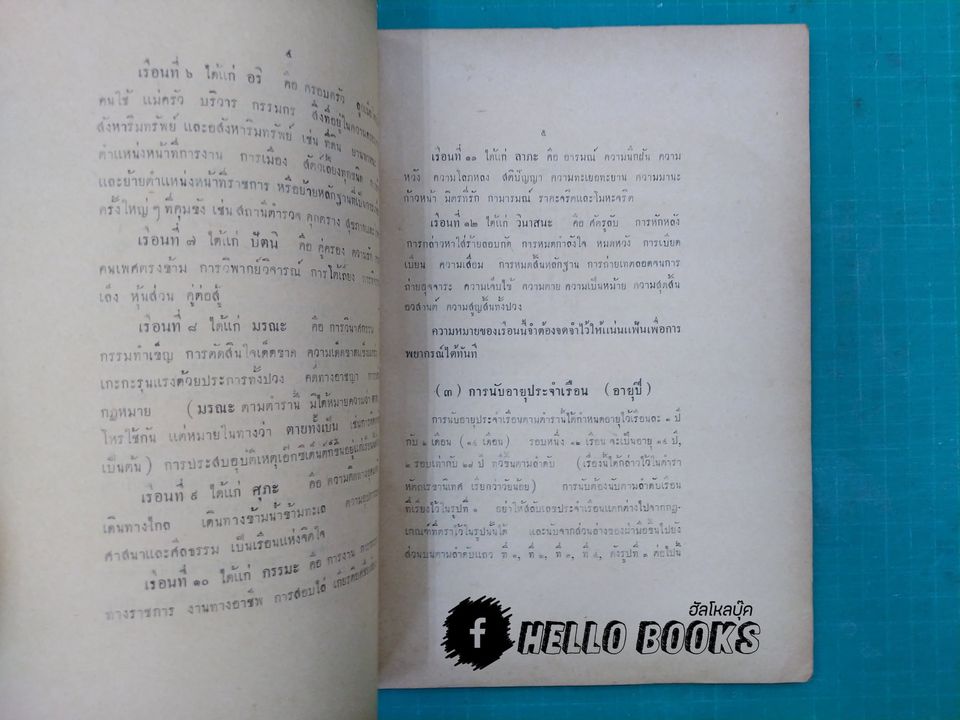 ๔
เรือนที่ ๖ ได้แก่ อริ คือ ครอบครัว
คนใช้ แม่ครัว บริวาร กรรมกร สิ่งที่อยู่ในความ
สังหาริมทรัพย์ และอสังหาริมทรัพย์ เช่น ที่ดิน
ตำแหน่งหน้าที่การงาน การเมือง สัตว์เลี้ยงทุกชนิด
และย้ายตำแหน่งหน้าที่ราชการ หรือย้ายหลักฐานที่
ครั้งใหญ่ๆ ที่คุมขัง เช่น สถานีตำรวจ คุกตราง
เรือนที่ ๗ ได้แก่ ปัตนิ คือ คู่ครอง
คนเพศตรงข้าม การวิพากย์วิจารณ์ การโต้เถียง
เล็ง หุ้นส่วน คู่ต่อสู้
เรือนที่ ๘ ได้แก่ มรณะ คือ การวินาสกรรม
กรรมทำเข็ญ การตัดสินใจเด็ดขาด
เกะกะรุนแรงด้วยประการทั้งปวง คดีทางอาชญา
กฎหมาย (มรณะ ตามตำรานี้ มิได้หมายความว่า ตาย
โหรใช้กัน แต่หมายในทางว่า ตายทั้งเป็น เช่น
เป็นต้น) การประสบอุบัติเหตุเอ๊กซิเด็นต์
เรือนที่ ๙ ได้แก่ ศุภะ คือ
เดินทางไกล เดินทางข้ามน้ำข้ามทะเล
ศาสนาและศีลธรรม เป็นเรือนแห่งจิตใจ
เรือนที่ ๑๐ ได้แก่ กรรมะ คือ การงาน
ทางราชการ งานทางอาชีพ การสอบไล่
๕
เรือนที่ ๑๑ ได้แก่ ลาภะ คือ อารมณ์ ความนึกฝัน ความ
หวัง ความโลภหลง สติปัญญา ความทะเยอทะยาน ความมานะ
ก้าวหน้า มิตรที่รัก กามารมณ์ ราคะจริตและโมหะจริต
เรือนที่ ๑๒ ได้แก่ วินาสนะ คือ ศัตรูลับ การหักหลัง
การกล่าวหาใส่ร้ายลอบกัด การหมดกำลังใจ หมดหวัง การเบียด
เบียน ความเสื่อม การหมดสิ้นหลักฐาน การถ่ายเทตลอดจนการ
ถ่ายอุจจาระ ความเจ็บไข้ ความตาย ความเป็นหม้าย ความสุดสิ้น
อวสานต์ ความสูญสิ้นทั้งปวง
ความหมายของเรือนนี้จำต้องจดจำไว้ให้แน่นแฟ้นเพื่อการ
พยากรณ์ได้ทันที
(๓) การนับอายุประจำเรือน (อายุปี)
การนับอายุประจำเรือนตามตำรานี้ได้กำหนดอายุไว้เรือนละ ๑ ปี
กับ ๒ เดือน (๑๔ เดือน) รอบหนึ่ง ๑๒ เรือน จะเป็นอายุ ๑๔ ปี,
๒ รอบเท่ากับ ๒๘ ปี ทวีขึ้นตามลำดับ (เรื่องนี้ได้กล่าวไว้ในตำรา
หัตถเรขานิเทศ เรียกว่าวัยน้อย) การนับต้องนับตามลำดับเรือน
ที่เรียงไว้ในรูปที่ ๑ อย่าให้สลับเลขประจำเรือนแตกต่างไปจากกฎ-
เกณฑ์ที่ตราไว้ในรูปนั้นได้ และนับจากส่วนล่างของฝ่ามือขึ้นไปยัง
ส่วนบนตามลำดับแถว ที่ ๑, ที่ ๒, ที่ ๓, ที่ ๔, ดังรูปที่ ๑ ต่อไปนี้
ฮัลโหลบุ๊ค
f HELLO BOOKS